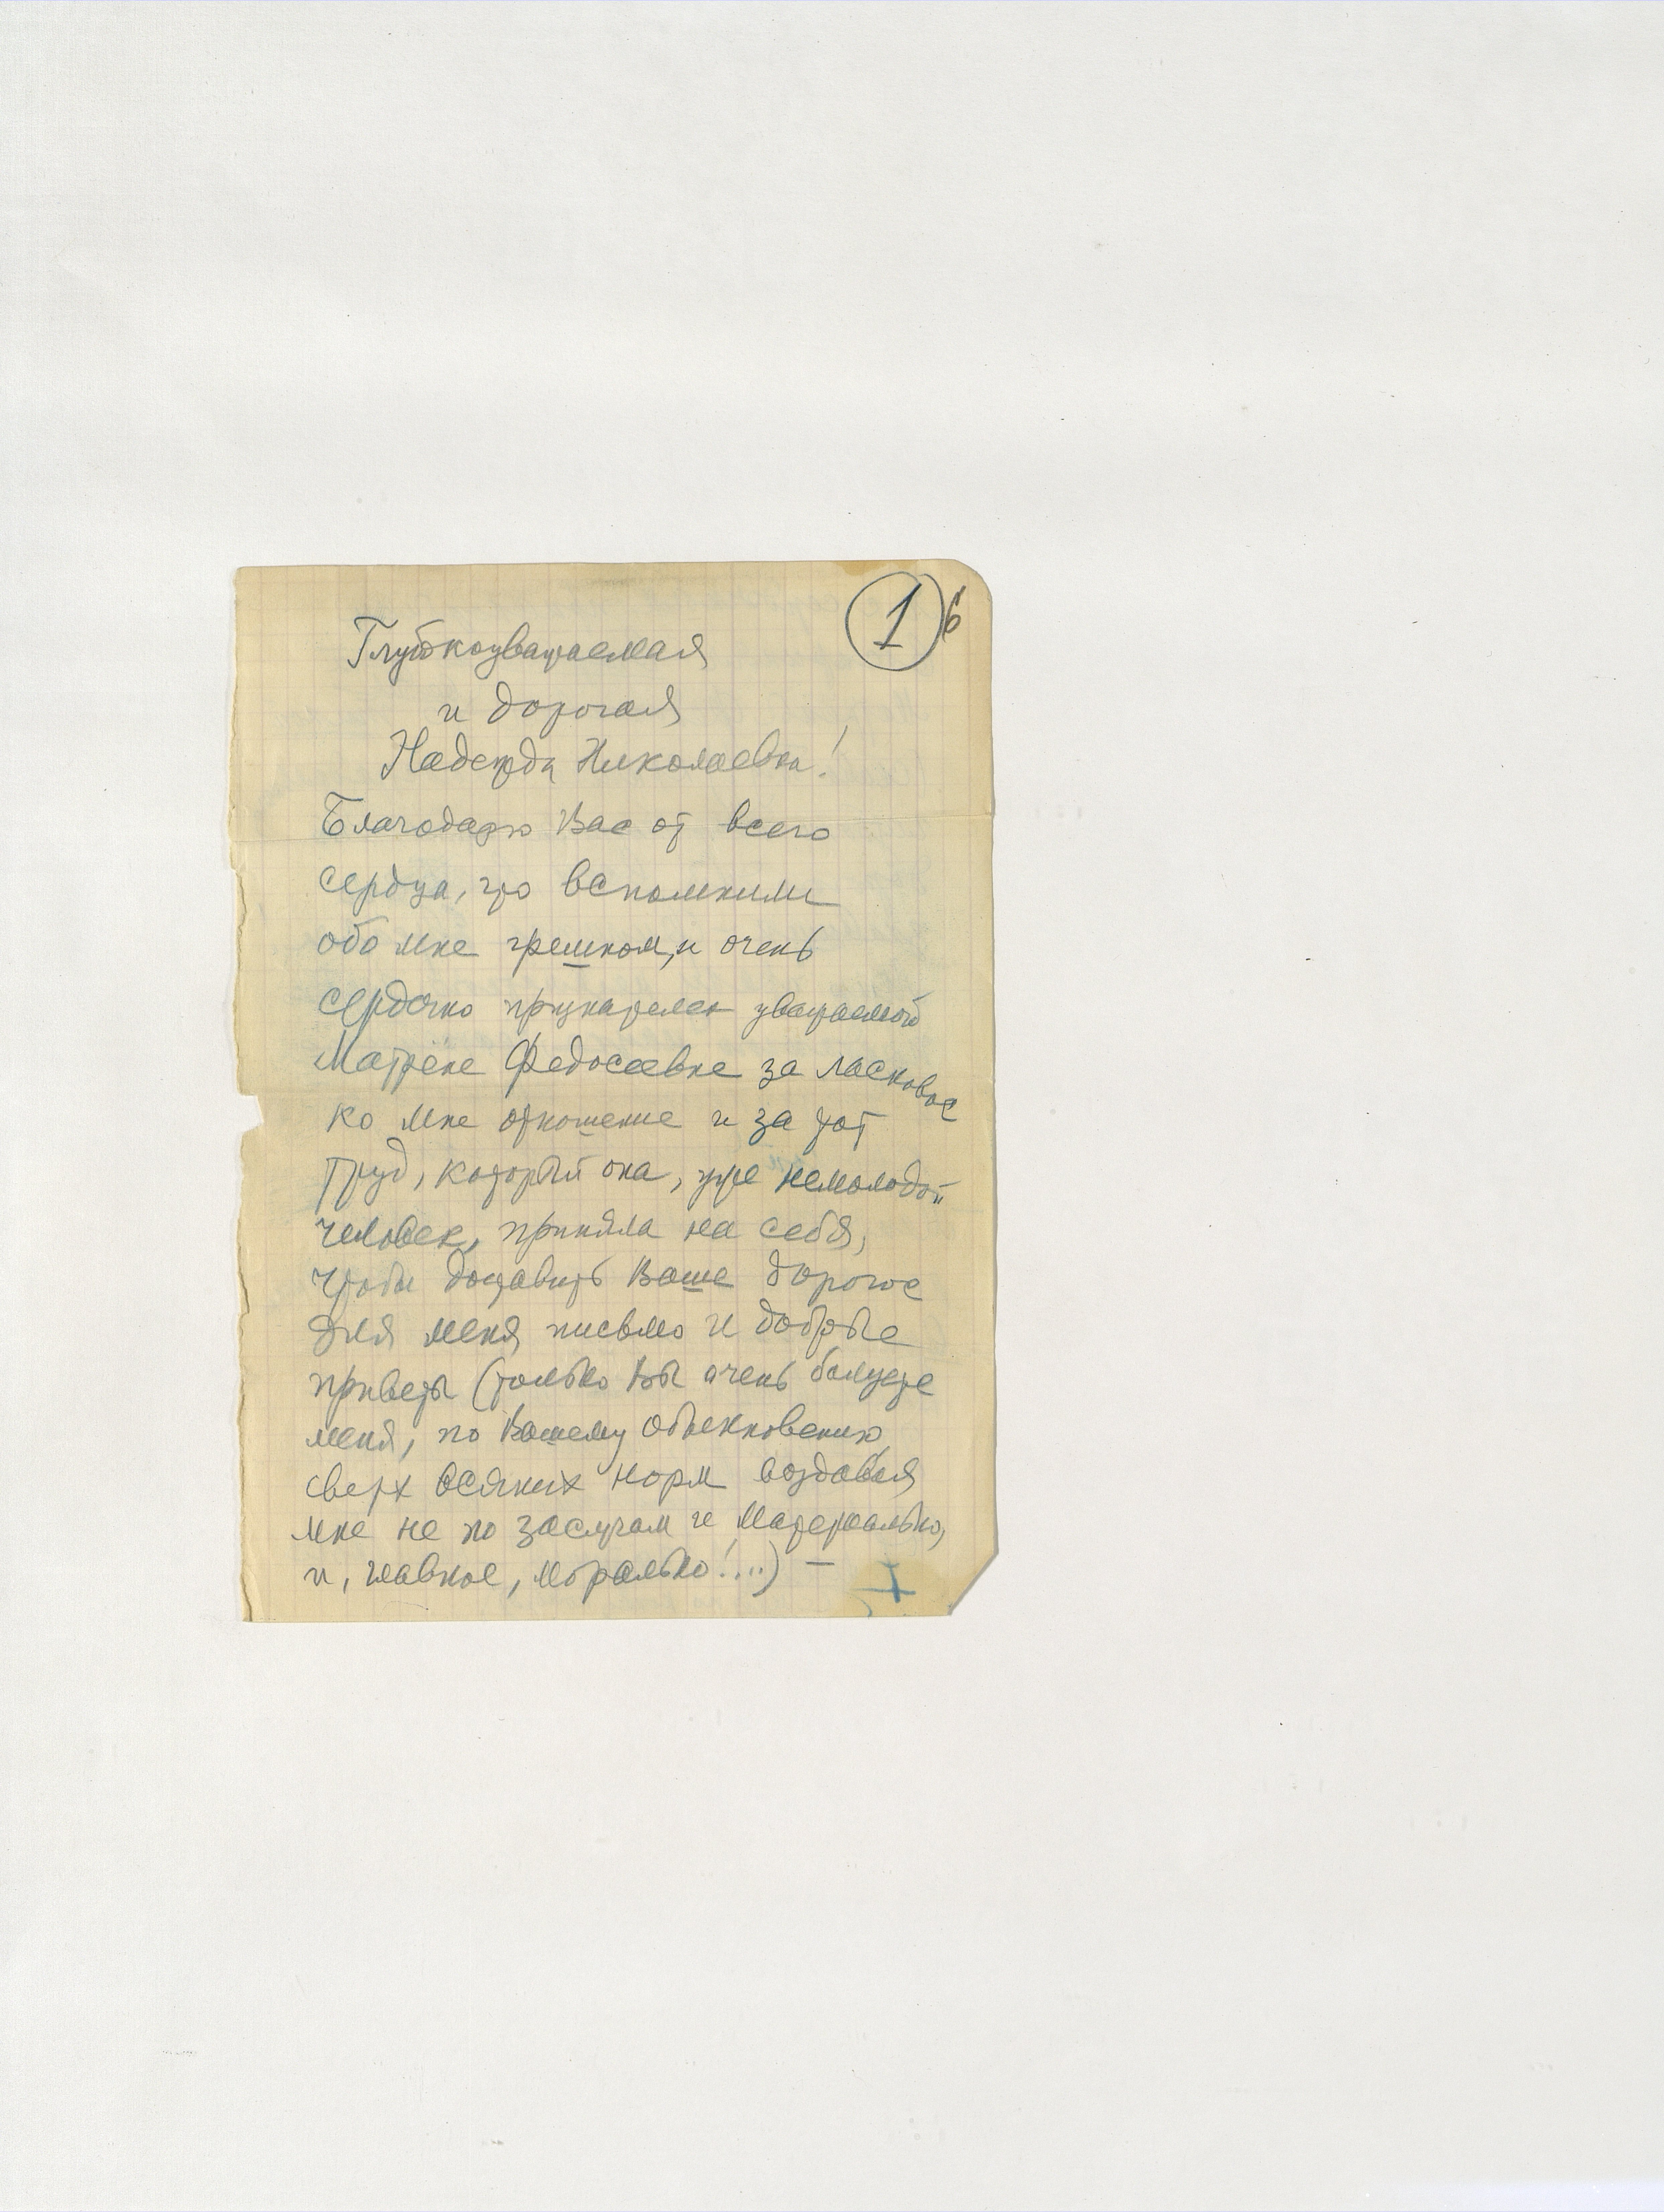 1 6
Глубокоуважаемая
и дорогая
Надежда Николаевна!
Благодарю Вас от всего
сердца, что вспомнили
обо мне грешном, и очень
сердечно признателен уважаемой
Матрёне Федосеевне за ласковое
ко мне отношение и за тот
труд, который она, уже немолодой
человек, приняла на себя,
чтобы доставить Ваше дорогое
для меня письмо и добрые
приветы (только Вы очень балуете
меня, по Вашему обыкновению,
сверх всяких норм воздавая
мне не по заслугам и материально,
и, главное, морально!...) —